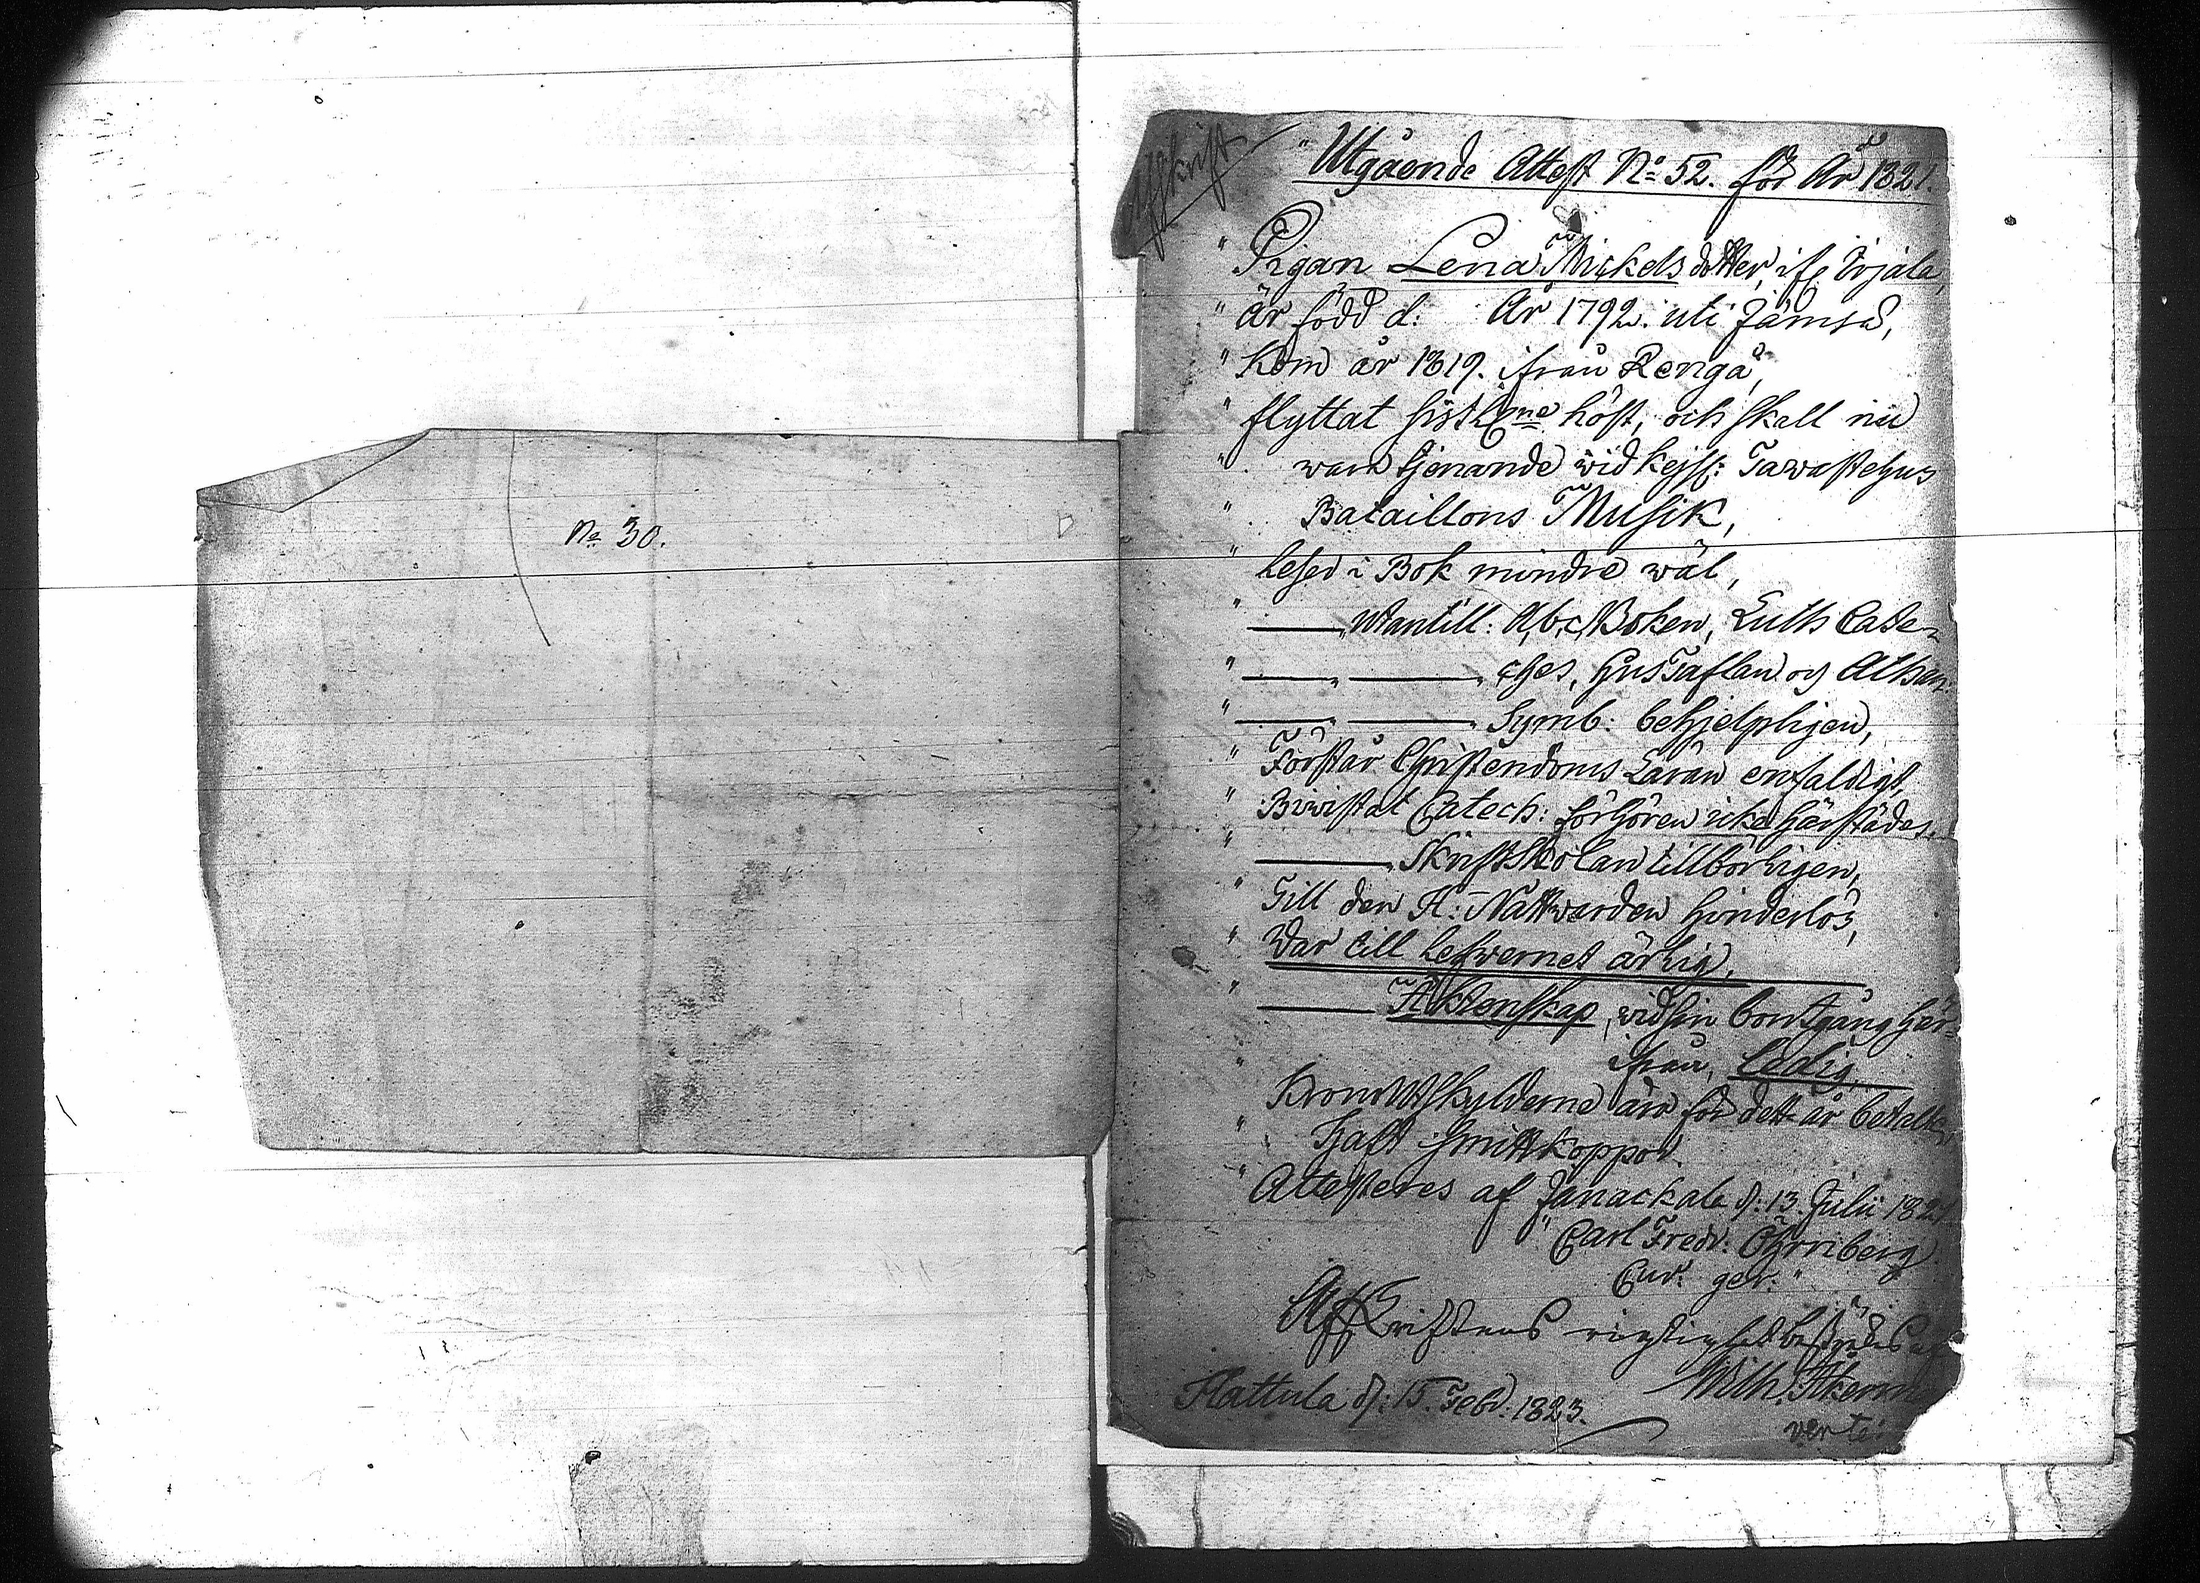 No 30.
Afskrift
" Utgående Attest No 52. för År 1821.
" Pigan Lena Mickelsdotter, ifr. Irjala,
" är född d: År 1792. uti Jämsä,
" Kom år 1819. ifrån Rengå,
" flyttat sistl. höst, och skall nu
" vara tjenande wid Kejsl: Tawastehus
" Bataillons Musik,
" Läser i Bok mindre wäl,
" ——„ Utantill: Abc Boken, Luth. Cate-
" ——„ ——„ ches, Hustaflan och Athan.
" ——„ ——„ Symb: behjelpligen,
" Förstår Christendoms Läran enfaldigt,
" Biwistat Catech: förhören icke härstädes.
" ——„ Skriftskolan tillbörligen,
" Till den H: Nattwarden hinderlös,
" War till lefwernet ärlig,
" ——— Äktenskap, wid sin bortgång här-
" ifrån, ledig,
Kronoutskylderne äro för detta år betalta,
" Haft Smittkoppor.
" Attesteres af Janackala d: 13. Julii 1821.
" Carl Fredr: Öhrnberg
Cur. ger. "
Afskriftens rigtighet betygas af
Wilh. Åkerm
Hattula d: 15. Febr. 1823.
verte: